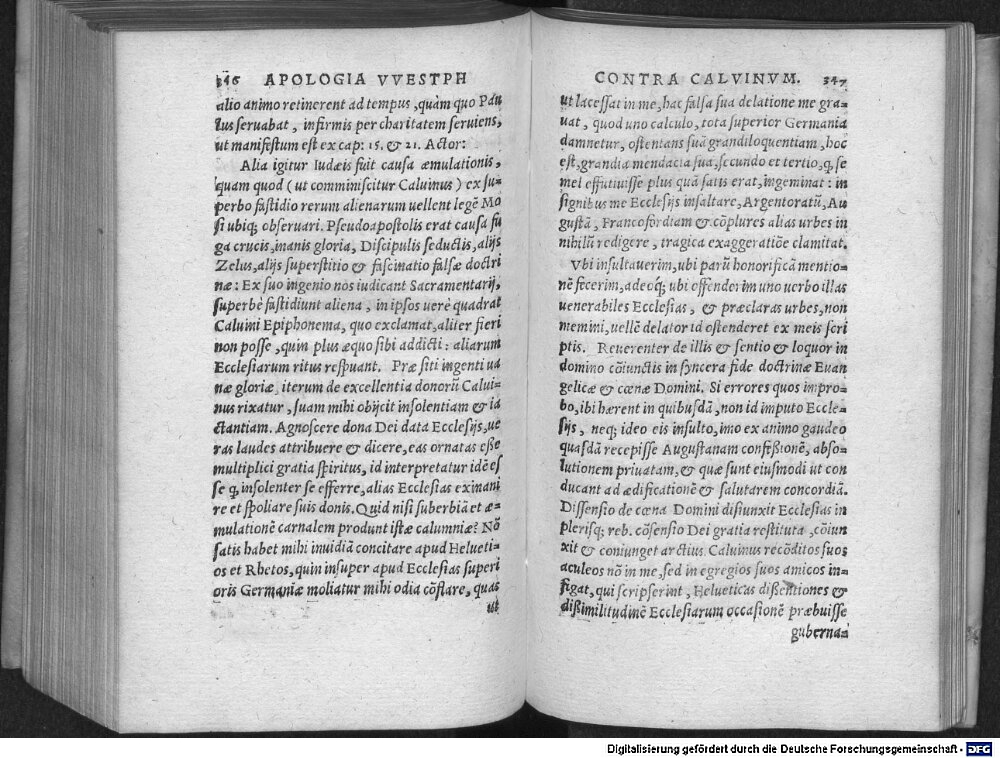 346 APOLOGIA VVESTPH
alio animo retinerent ad tempus, quam quo Pau
lus seruabat, infirmis per charitatem seruiens,
ut manifestum est ex cap: 15. & 21. Actor:
Alia igitur Iudæis fuit causa æmulationis,
quam quod (ut comminiscitur Caluinus) ex su-
perbo fastidio rerum alienarum uellent legē Mo
si ubiq; obseruari. Pseudoapostolis erat causa fu
ga crucis, inanis gloria, Discipulis seductis, alijs
Zelus, alijs superstitio & fascinatio falsæ doctri
næ: Ex suo ingenio nos iudicant Sacramentarij,
superbè fastidiunt aliena, in ipsos uerè quadrat
Caluini Epiphonema, quo exclamat, aliter fieri
non posse, quin plus æquo sibi addicti: aliarum
Ecclesiarum ritus respuant. Præ siti ingenti ua
næ gloriæ, iterum de excellentia donorū Calui-
nus rixatur, suam mihi obijcit insolentiam & ia
ctantiam. Agnoscere dona Dei data Ecclesijs, ue
ras laudes attribuere & dicere, eas ornatas esse
multiplici gratia spiritus, id interpretatur idē es
se q, insolenter se efferre, alias Ecclesias exinani
re et spoliare suis donis. Quid nisi suberbiā et æ-
mulationē carnalem produnt istæ calumniæ? Nō
satis habet mihi inuidiā concitare apud Heluetі-
os et Rhetos, quin insuper apud Ecclesias superi
oris Germaniæ moliatur mihi odia cōflare, quas
ut
CONTRA CALVINVM. 347
ut lacessat in me, hac falsa sua delatione me gra-
uat, quod uno calculo, tota superior Germania
damnetur, ostentans suā grandiloquentiam, hoc
est, grandia mendacia sua, secundo et tertio, q, se
mel effutiuisse plus quā satis erat, ingeminat: in
signibus me Ecclesijs insultare, Argentoratū, Au
gustā, Francofordiam & cōplures alias urbes in
nihilū redigere, tragica exaggeratiōe clamitat.
Vbi insultauerim, ubi parū honorificā mentio-
nē fecerim, adeoq; ubi offenderim uno uerbo illas
uenerabiles Ecclesias, & præclaras urbes, non
memini, uellē delator id ostenderet ex meis scri
ptis. Reuerenter de illis & sentio & loquor in
domino cōiunctis in syncera fide doctrinæ Euan
gelicæ & cœnæ Domini. Si errores quos impro-
bo, ibi hærent in quibusdā, non id imputo Eccle-
sijs, neq; ideo eis insulto, imo ex animo gaudeo
quasdā recepisse Augustanam confessionē, abso-
lutionem priuatam, & quæ sunt eiusmodi ut con
ducant ad ædificationē & salutarem concordiā.
Dissensio de cœna Domini disiunxit Ecclesias in
plerisq; reb. cōsensio Dei gratia restituta, cōiun
xit & coniunget arctius. Caluinus recōditos suos
aculeos nō in me, sed in egregios suos amicos in-
figat, qui scripserint, Helueticas dissentiones &
dissimilitudinē Ecclesiarum occasionē præbuisse
guberna-
Digitalisierung gefördert durch die Deutsche Forschungsgemeinschaft - DFG